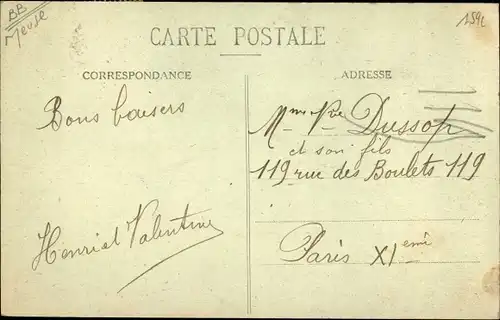 BB
Meuse
CARTE POSTALE
CORRESPONDANCE
ADRESSE
Bons baisers
Henri et Valentine
Mme Vve Dussop
et son fils
119 rue des Boulets 119
Paris XIeme